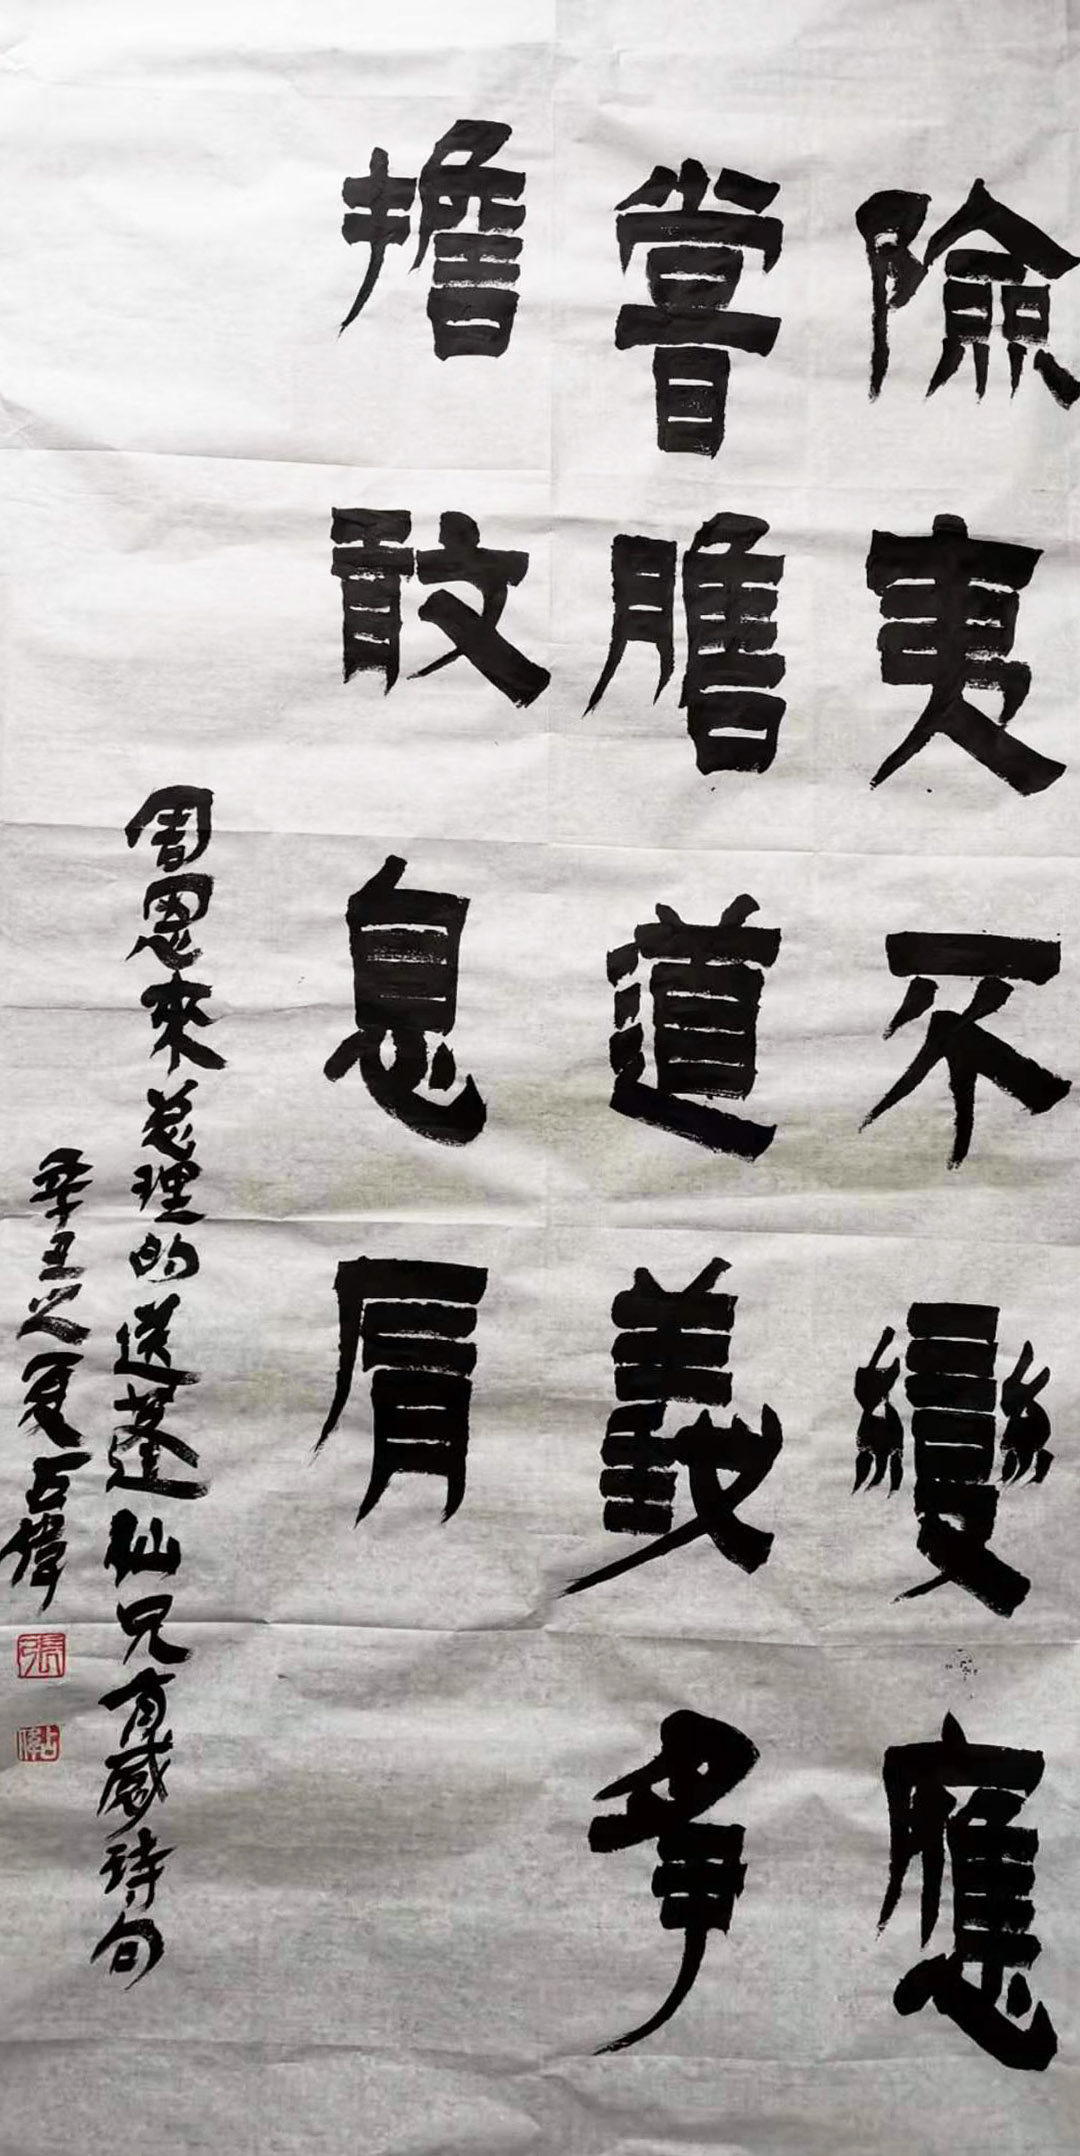 險夷不變應
嘗膽道義爭
擔敢息肩
周恩來总理的送蓬仙兄有感诗句
辛丑之夏占偉
張
占偉